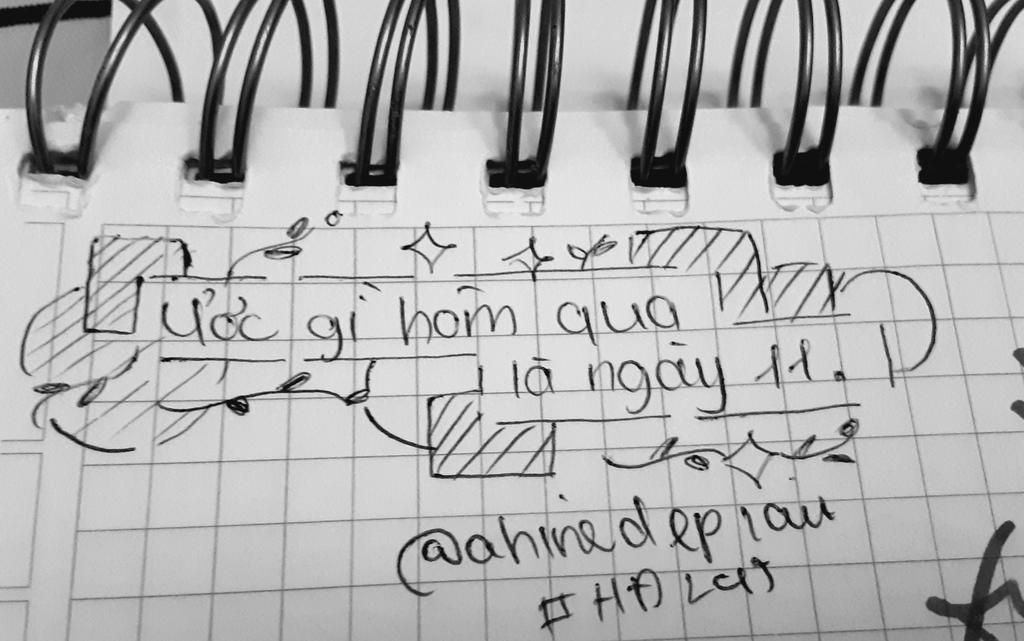 Ước gì hôm qua
là ngày 11.
@ahinedepiau